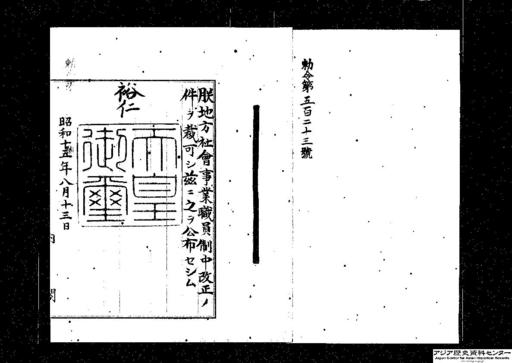 勅令第五百二十三號
朕地方社會事業職員制中改正ノ
件ヲ裁可シ茲ニ之ヲ公布セシム
裕仁
天皇
御璽
昭和十五年八月十三日
内閣
アジア歴史資料センター
Japan Center for Asian Historical Records